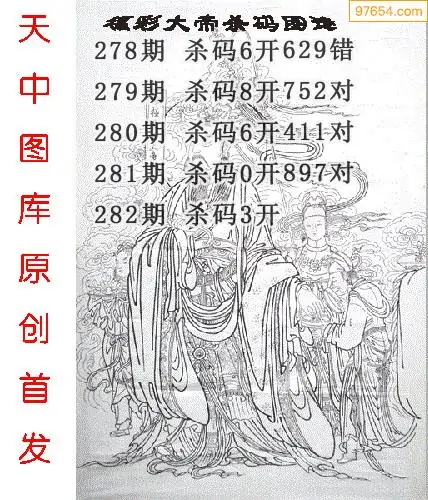 97654.com
福彩大帝杀码图迷
278期 杀码6开629错
279期 杀码8开752对
280期 杀码6开411对
281期 杀码0开897对
282期 杀码3开
天中图库原创首发